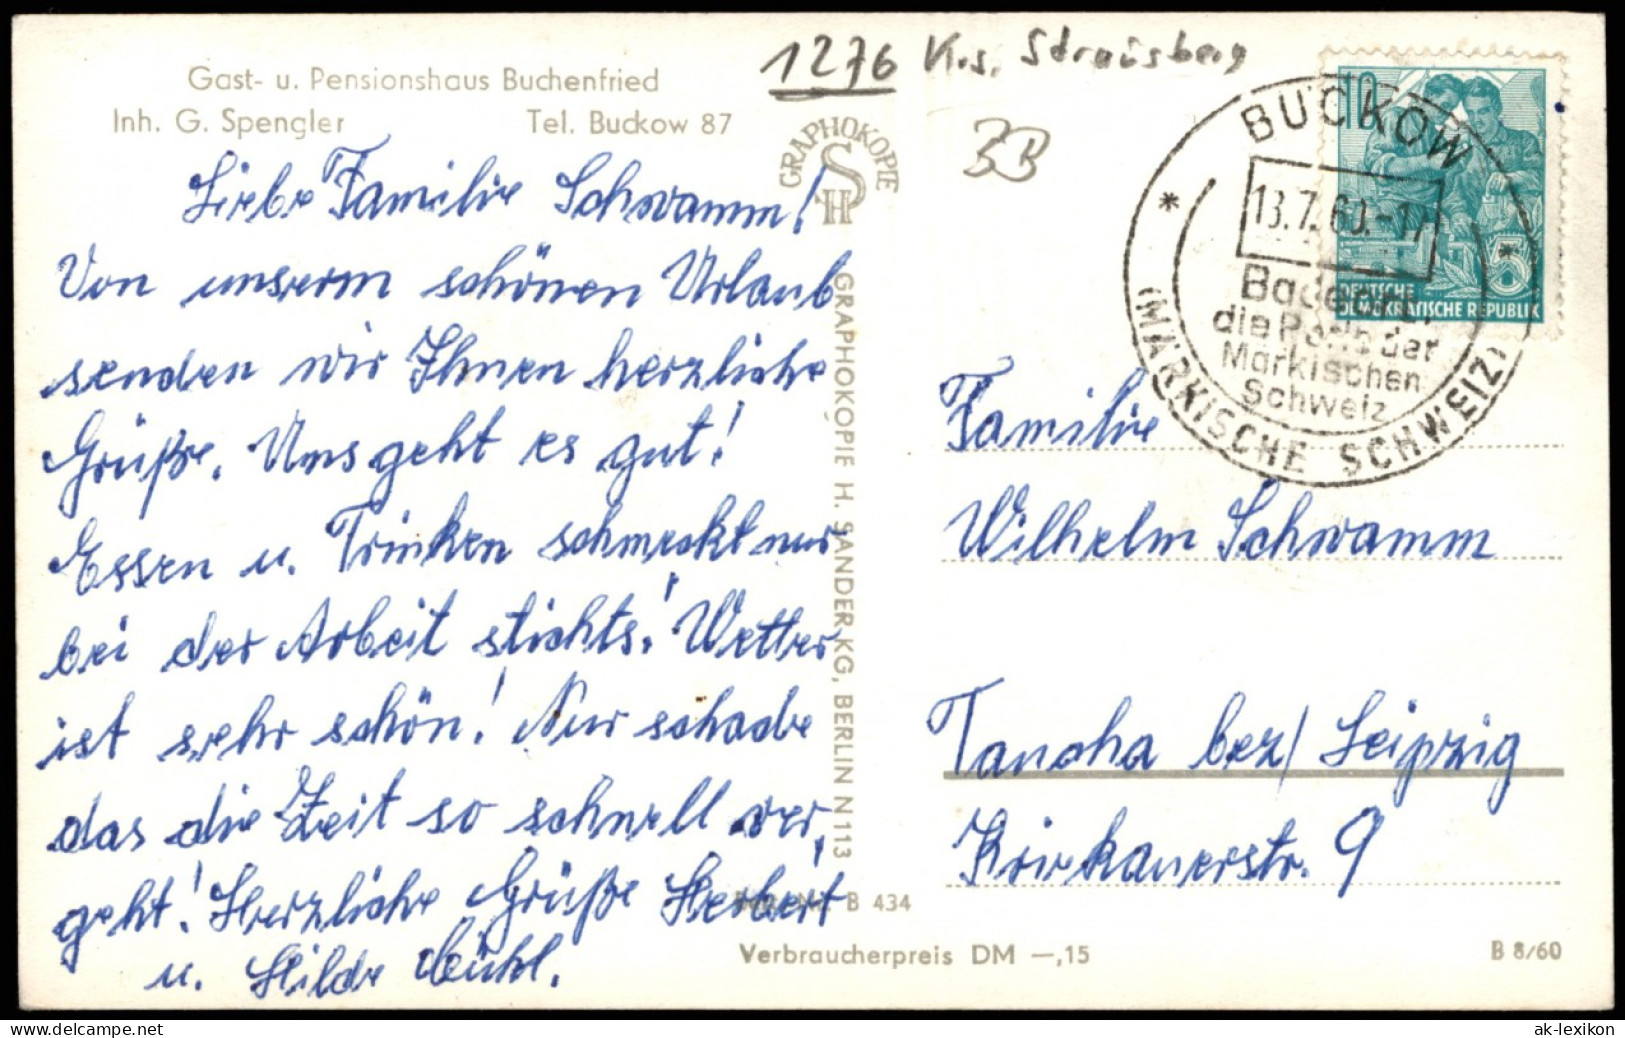 1276 Krs. Strausberg
Gast- u. Pensionshaus Buchenfried
Inh. G. Spengler Tel. Buckow 87
Liebe Familie Schwamm!
Von unserem schönen Urlaub
senden wir Ihnen herzliche
Grüße. Uns geht es gut!
Essen u. Trinken schmeckt nur
bei der Arbeit stichts! Wetter
ist sehr schön! Nur schade
das die Zeit so schnell ver,
geht! Herzliche Grüße Herbert
u. Hilde
GRAPHOKOPIE
H S
GRAPHOKOPIE H. SANDER KG, BERLIN N 113
B 434
Verbraucherpreis DM —,15
B 8/60
BUCKOW
13.7.60.-17
Badeort,
die Perle der
Märkischen
Schweiz
(MÄRKISCHE SCHWEIZ)
10
5
DEUTSCHE
DEMOKRATISCHE REPUBLIK
Familie
Wilhelm Schwamm
Taucha bez/ Leipzig
Kriekauerstr. 9
ak-ansichtskarten.de
ak-lexikon